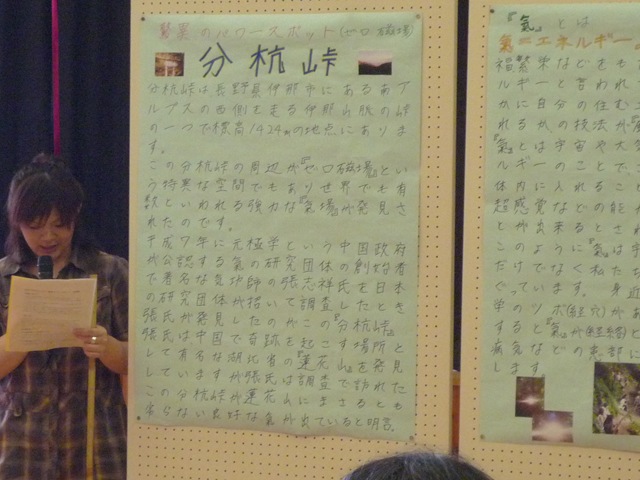 驚異のパワースポット(ゼロ磁場)
分杭峠
分杭峠は長野県伊那市にある南ア
ルプスの西側を走る伊那山脈の峠
の一つで標高1424mの地点にありま
す。
この分杭峠の周辺が『ゼロ磁場』とい
う特異な空間でもあり世界でも有
数といわれる強力な『氣場』が発見さ
れたのです。
平成7年に元極学という中国政府
が公認する氣の研究団体の創始者
で著名な気功師の張志祥氏を日本
の研究団体が招いて調査したとき
張氏が発見したのがこの『分杭峠』
張氏は中国で奇跡を起こす場所と
して有名な湖北省の『蓮花山』を発見
していますが張氏は調査で訪れた
この分杭峠が蓮花山にまさるとも
劣らない良好な氣が出ていると明言。
『氣』とは
氣=エネルギー
福繁栄などをも
ルギーと言われ
かに自分の住む
れるか、の技法が
『氣』とは宇宙や大
ルギーのことで
体内に入れるこ
超感覚などの能
とが出来るとされ
このように『氣』は宇
だけでなく私たち
ぐっています。身近
学のツボ(経穴)があ
すると『氣』が経絡と
病気などの患部に
します